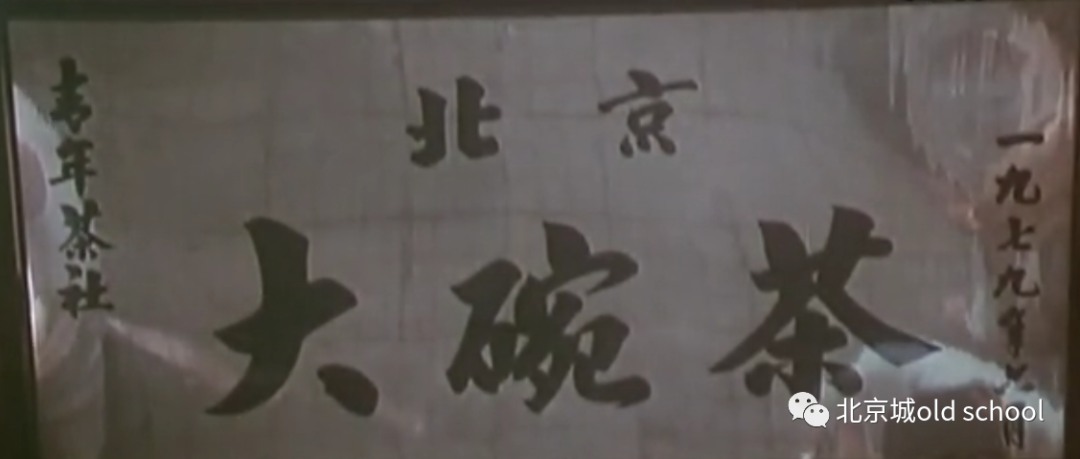 北京
大碗茶
一九七九年六月
青年茶社
北京城old school